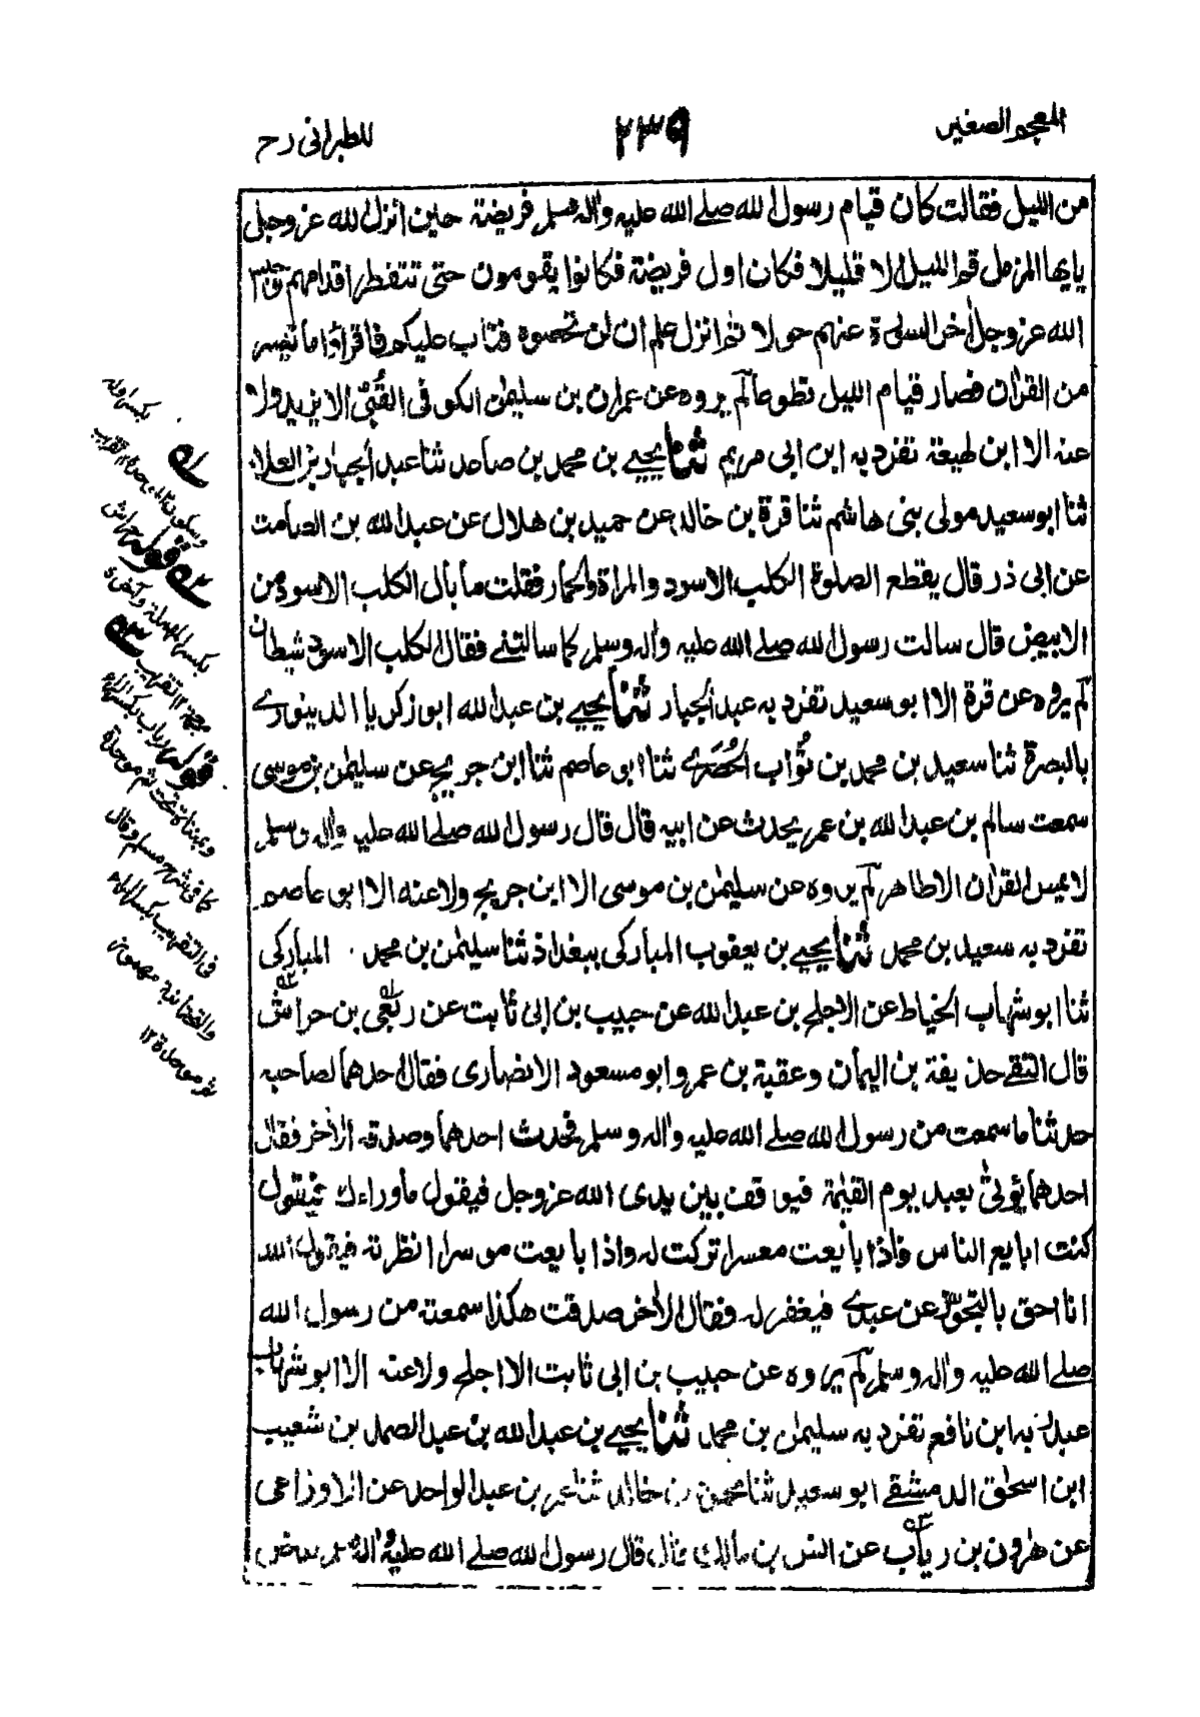 المعجم الصغير
٢٣٩
للطبرانى رح
من الليل فقالت كان قيام رسول الله صلے الله عليه واٰله وسلم فريضة حين انزل الله عز وجل
يايها المزمل قم الليل الا قليلا فكان اول فريضة فكانوا يقومون حتى تتفطر اقدامهم
الله عز وجل اٰخر السورة عنهم حولا ثم انزل علم ان لن تحصوه فتاب عليكم فاقرءوا ما تيسر
من القراٰن فصار قيام الليل تطوعا لم يروه عن عمران بن سليمٰن الكوفى القُبّى الا يزيد ولا
عنه الا ابن لهيعة تفرد به ابن ابى مريم ثنا يحيے بن محمد بن صاعد ثنا عبد الجبار بن العلاء
ثنا ابو سعيد مولى بنى هاشم ثنا قرة بن خالد عن حميد بن هلال عن عبد الله بن الصامت
عن ابى ذر قال يقطع الصلوة الكلب الاسود والمراة والحمار فقلت ما بال الكلب الاسود من
الابيض قال سالت رسول الله صلے الله عليه واٰله وسلم كما سالتنے فقال الكلب الاسود شيطان
لم يروه عن قرة الا ابو سعيد تفرد به عبد الجبار ثنا يحيے بن عبد الله ابو زكريا الدينورے
بالبصرة ثنا سعيد بن محمد بن ثَواب الحُصَرے ثنا ابى عاصم ثنا ابن جريج عن سليمٰن بن موسى
سمعت سالم بن عبد الله بن عمر يحدث عن ابيه قال قال رسول الله صلے الله عليه واٰله وسلم
لا يمس القراٰن الا طاهر لم يروه عن سليمٰن بن موسى الا ابن جريج ولا عنه الا ابو عاصم
تفرد به سعيد بن محمد ثنا يحيے بن يعقوب المباركى ببغداذ ثنا سليمٰن بن محمد المباركى
ثنا ابو شهاب الخياط عن الاجلح بن عبد الله عن حبيب بن ابى ثابت عن ربعى بن حراش
قال التقے حذيفة بن اليمان وعقبة بن عمرو ابو مسعود الانصارى فقال احدهما لصاحبه
حدثنا ما سمعت من رسول الله صلے الله عليه واٰله وسلم فحدث احدهما وصدقه الاٰخر فقال
احدهما يؤتىٰ بعبد يوم القيٰمة فيوقف بين يدى الله عز وجل فيقول ما وراءك فيقول
كنت ابايع الناس فاذا بايعت معسرا تركت له واذا بايعت موسرا انظرته فيقول الله
انا احق بالتجوّز عن عبدے فيغفر له فقال الاٰخر صدقت هكذا سمعته من رسول الله
صلے الله عليه واٰله وسلم لم يروه عن حبيب بن ابى ثابت الا اجلح ولا عنه الا ابو شهاب
عبد ربه ابن نافع تفرد به سليمٰن بن محمد ثنا يحيے بن عبد الله بن عبد الصمد بن شعيب
ابن اسحٰق الدمشقے ابو سعيد ثنا محمود بن خالد ثنا عمر بن عبد الواحد عن الاوزاعى
عن هٰرون بن رياب عن انس بن مالك قال قال رسول الله صلے الله عليه واٰله وسلم
بكسر اوله
وسكون
قوله حراش
بكسر المهملة واٰخره
معجمة ١٢ تقريب
قوله رياب بكسر الراء
وبمثناة تحت ثم موحدة
كما فى شرح مسلم وقال
فى التقريب بكسر الراء
والتحتانية مهموز
ثم موحدة ١٢